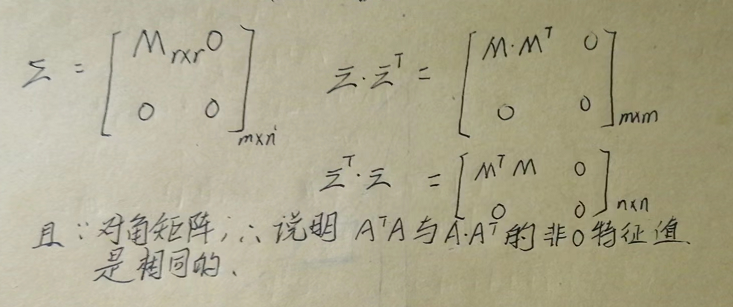 Σ = [ M_{r×r} 0 ; 0 0 ]_{m×n}  Σ·Σ^T = [ M·M^T 0 ; 0 0 ]_{m×m}
Σ^T·Σ = [ M^T M 0 ; 0 0 ]_{n×n}
且∵对角矩阵,∴说明 A^TA与A·A^T的非0特征值
是相同的、